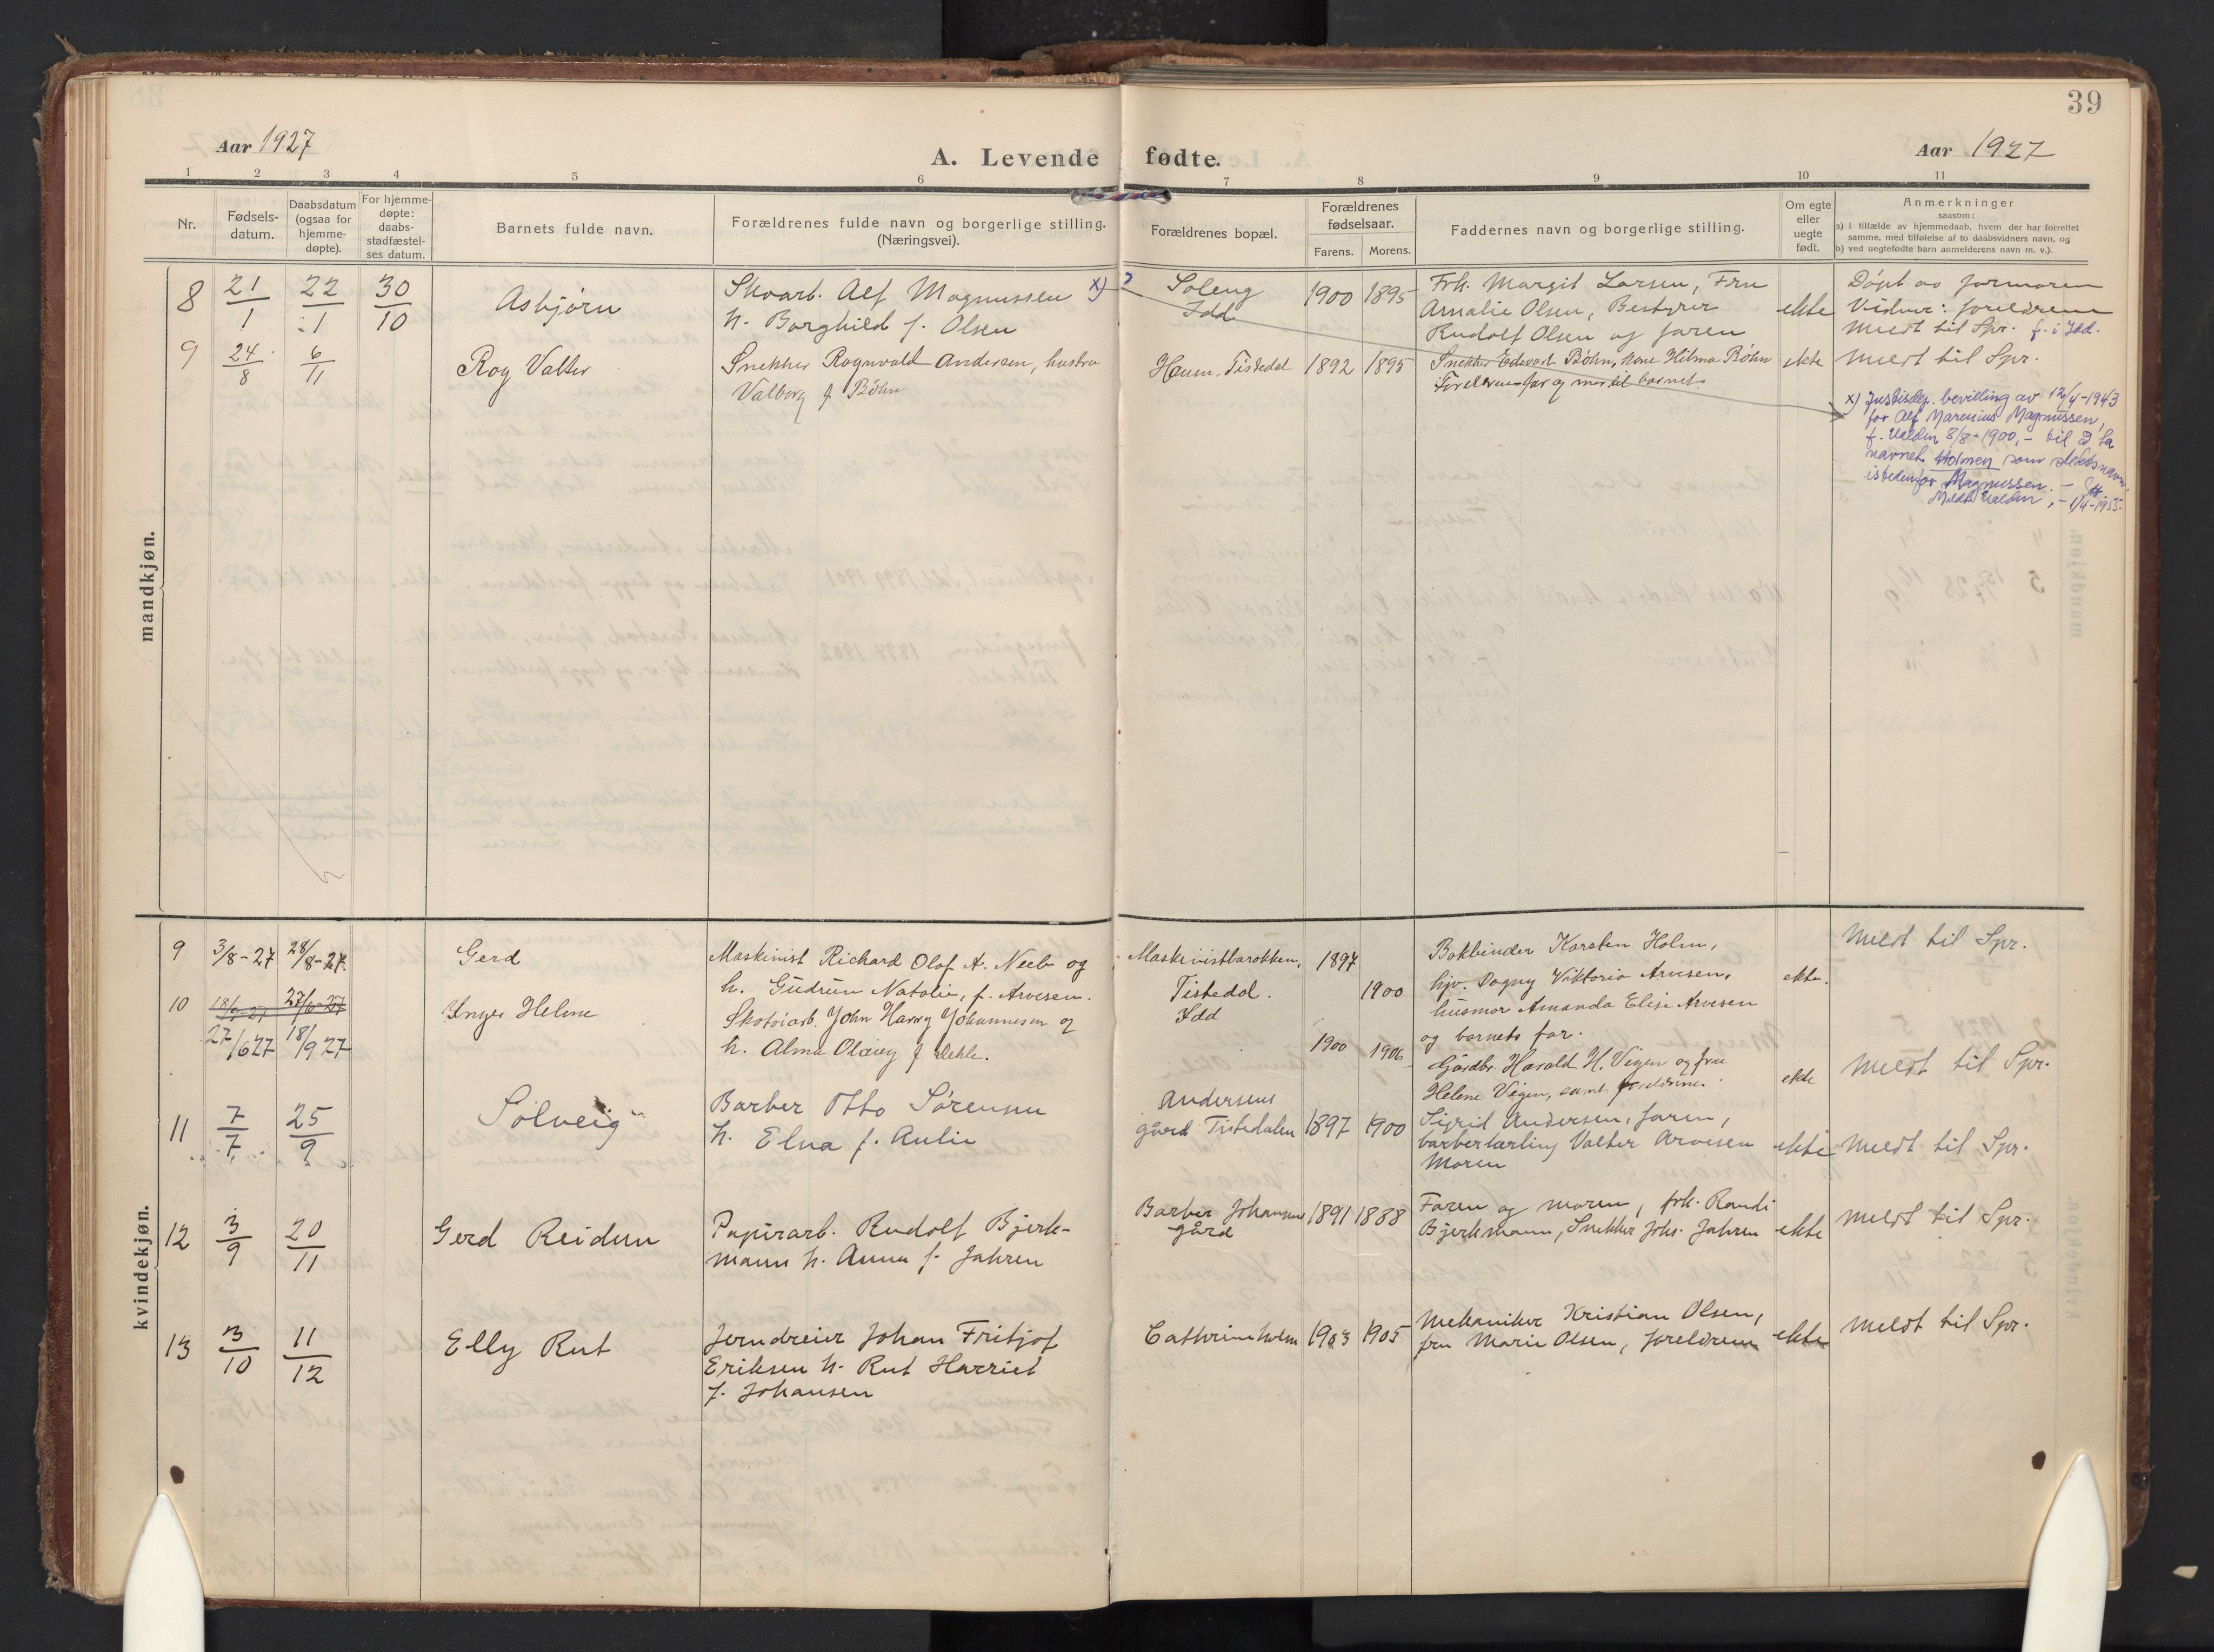 39
Aar 1927
A. Levende fødte.
Aar 1927
1 2 3 4 5 6 7 8 9 10 11
Nr.
Fødsels-
datum.
Daabsdatum
(ogsaa for
hjemme-
døpte).
For hjemme-
døpte:
daabs-
stadfæstel-
ses datum.
Barnets fulde navn.
Forældrenes fulde navn og borgerlige stilling.
(Næringsvei).
Forældrenes bopæl.
Forældrenes
fødselsaar.
Farens. Morens.
Faddernes navn og borgerlige stilling.
Om egte
eller
uegte
født.
Anmerkninger
saasom:
a) i tilfælde av hjemmedaab, hvem der har forrettet
samme, med tilføielse af to daabsvidners navn, og
b) ved uegtefødte barn anmelderens navn m. v.).
mandkjøn.
8 21/1 22/1 30/10
Asbjørn
Skoarb. Alf Magnussen x)
h. Borghild f. Olsen
Soleng
Idd
1900 1895
Frk. Margit Larsen, Fru
Amalie Olsen, Bestyrer
Rudolf Olsen og faren
ekte
Døpt av farmoren
Vidner: foreldrene
Meldt til Spr. f. i Idd.
9 24/8 6/11
Roy Valter
Snekker Ragnvald Andersen, hustru
Valborg f Bøhn
Haum. Tistedal
1892 1895
Snekker Edvard Bøhn, kone Hilma Bøhn
Foreldrene far og mor til barnet
ekte
Meldt til Spr.
x) Justisdep. bevilling av 12/4-1943
for Alf Marenius Magnussen,
f. Halden 8/8-1900, - til å ta
navnet Holmen som slektsnavn
istedenfor Magnussen. -
Meldt Halden, - 1/4-1955-
kvindekjøn.
9 3/8-27 28/8-27.
Gerd
Maskinist Richard Olaf A. Neeb og
h. Gudrun Natalie, f. Arvesen.
Maskinistbarakken,
Tistedal.
Idd
1897
1900
Bokbinder Karsten Holm,
hjv. Dagny Viktoria Arvesen,
husmor Amanda Elise Arvesen
og barnets far.
ekte.
Meldt til Spr.
10 18/9-27 27/6-27
27/6 27 18/9 27
Inger Helene
Skotøiarb. John Harry Johannesen og
h. Alma Olavy f Dehle.
1900 1906
Gårdbr. Harald H. Vigen og fru
Helene Vigen, samt foreldrene.
ekte
Meldt til Spr.
11 7/7 25/9
Solveig
Barber Otto Sørensen
h. Elna f. Aulie
Andersens
gård Tistedalen
1897 1900
Sigrid Andersen, faren,
barberlærling Valter Arvesen
Moren
ekte
Meldt til Spr.
12 3/9 20/11
Gerd Reidun
Papirarb. Rudolf Bjerk-
mann h. Anna f. Jahren
Barber Johansens
gård
1891 1888
Faren og moren, frk. Randi
Bjerkmann, Snekker Johs. Jahren
ekte
Meldt til Spr.
13 3/10 11/12
Elly Rut
Jerndreier Johan Fritjof
Eriksen h. Rut Harriet
f. Johansen
Cathrineholm
1903 1905
Mekaniker Kristian Olsen,
fru Marie Olsen, foreldrene
ekte
Meldt til Spr.